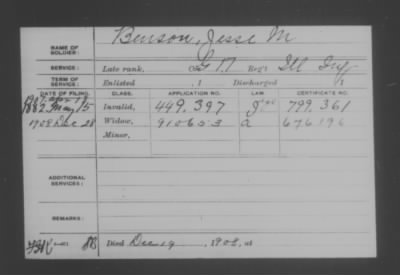 Benson, Jesse M
NAME OF SOLDIER:
SERVICE: Late rank, Co. G 17 Reg't Ill Inf
TERM OF SERVICE: Enlisted , 1 Discharged , 1
DATE OF FILING. CLASS. APPLICATION NO. LAW. CERTIFICATE NO.
1882 May 15 Invalid, 449,397 799,361
1908 Dec 28 Widow, 910653 a 676196
Minor,
ADDITIONAL SERVICES:
REMARKS:
Died Dec 19, 1908, at